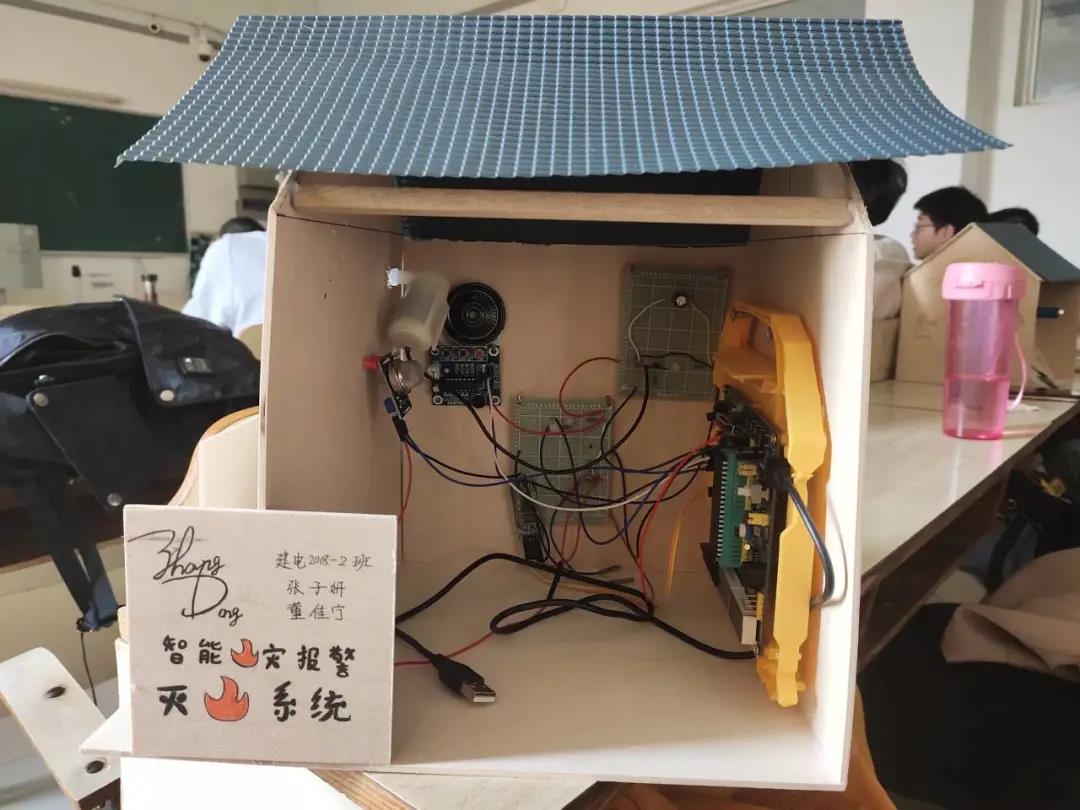 Zhang
Dong
建电2018-2班
张子妍
董佳宁
智能🔥灾报警
灭🔥系统